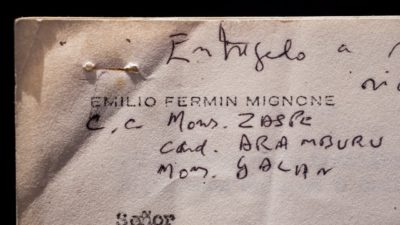 Entregelo a
EMILIO FERMIN MIGNONE
c.c Mons. ZASPE
Card. ARAMBURU
Mons. GALAN
Señor